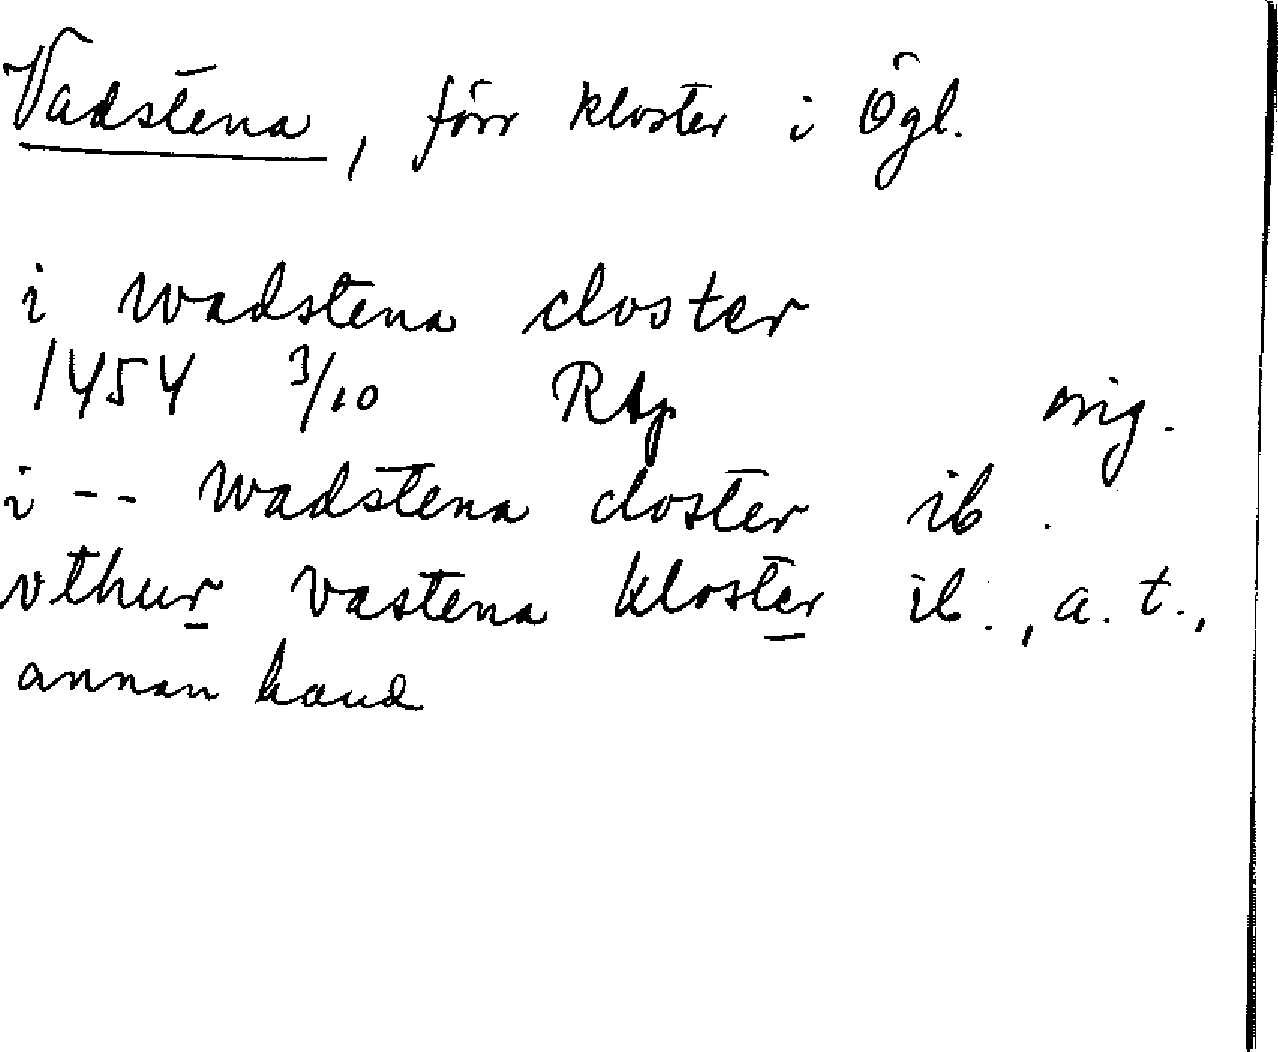 Vadstena, förr kloster i Ögl.
i wadstena closter
1454 3/10 RAp orig.
i -- wadstena closter ib.
vthur vastena kloster ib., a. t.,
annan hand